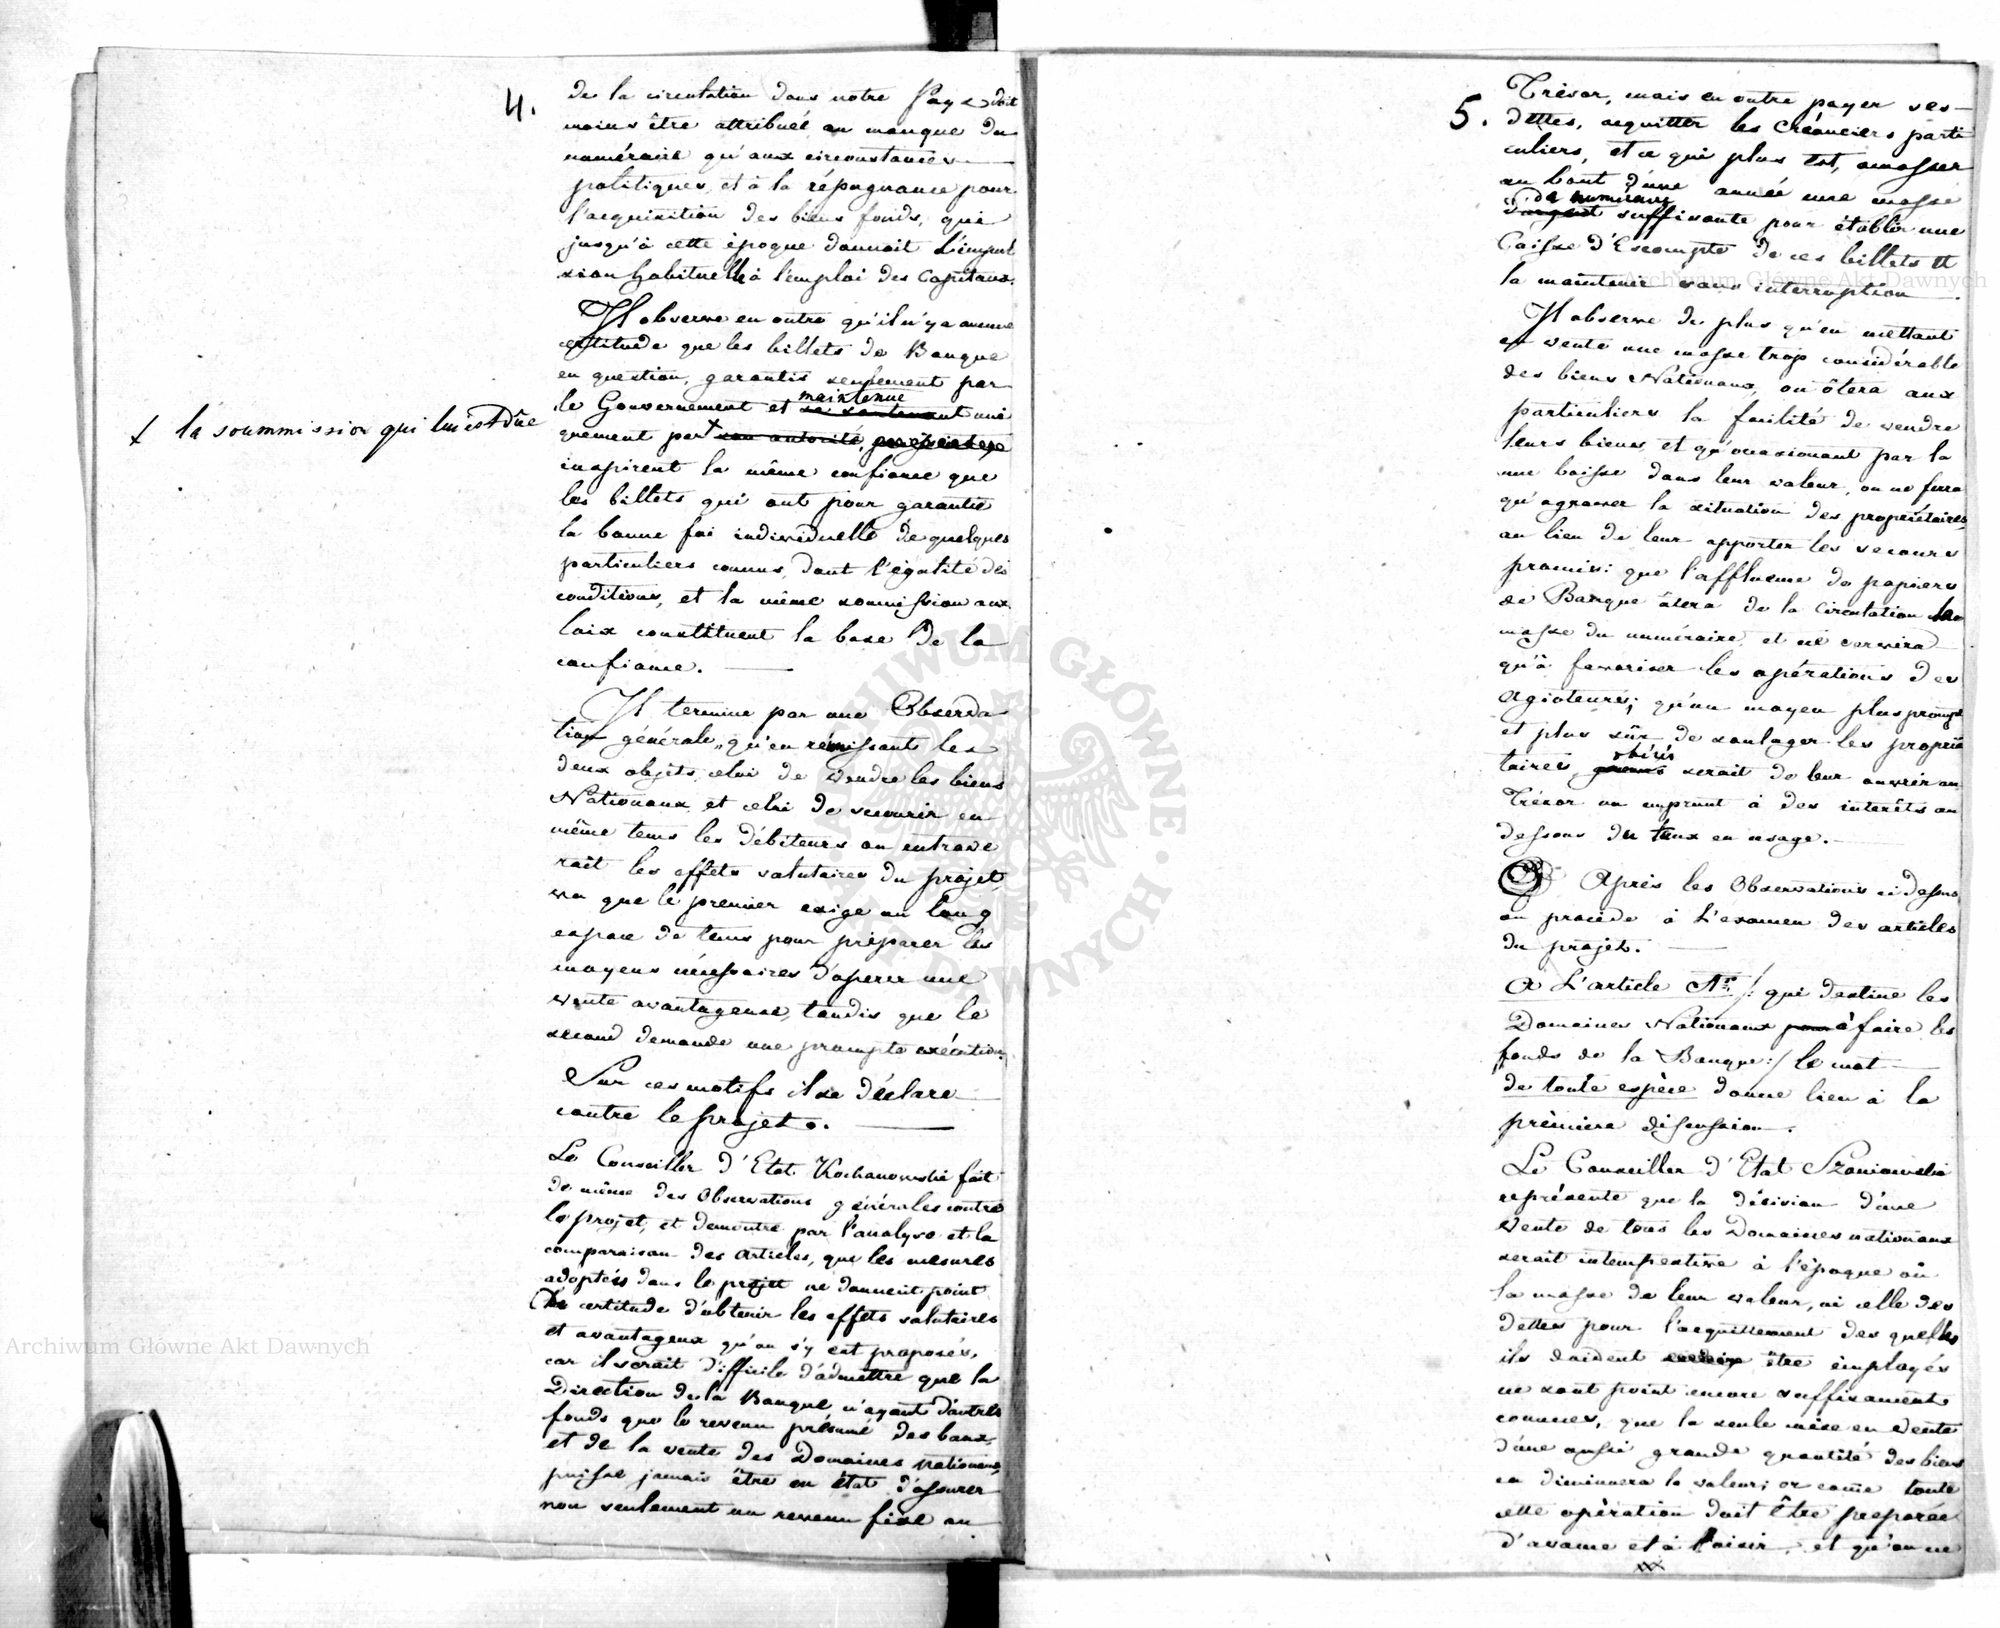 4.
de la circulation dans notre Pays doit
moins être attribuée au manque du
numéraire qu'aux circonstances
politiques, et à la répugnance pour
l'acquisition des biens fonds, qui
jusqu'à cette époque donnoit l'impul
sion habituelle à l'emploi des Capitaux.
Il observe en outre qu'il n'y a aucune
certitude que les billets de Banque
en question, garantis seulement par
le Gouvernement et maintenue uni
quement par +
+ la soummission qui lui est dûe
inspirent la même confiance que
les billets qui ont pour garantie
la bonne foi individuelle de quelques
particuliers connus, dont l'égalité des
conditions, et la même soumission aux
loix constituent la base de la
confiance.
Il termine par une Observa
tion générale, qu'en réunissant les
deux objets, celui de vendre les biens
Nationaux et celui de secourir en
même tems les débiteurs on entrave
rait les effets salutaires du projet,
vu que le premier exige un long
espace de tems pour préparer les
moyens nécessaires d'operer une
vente avantageuse, tandis que le
second demande une prompte exécution.
Sur ces motifs il se déclare
contre le projet.
Le Conseiller d'Etat Kochanowski fait
de même des Observations générales contre
le projet, et demontre par l'analyse et la
comparaison des articles, que les mesures
adoptées dans le projet ne donnent point
de certitude d'obtenir les effets salutaires
et avantageux qu'on s'y est proposés,
car il serait difficile d'admettre que la
Direction de la Banque n'ayant d'autres
fonds que le revenu présumé des baux,
et de la vente des Domaines nationaux,
puisse jamais être en état d'assurer
non seulement un revenu fixe au
5.
Trésor, mais en outre payer ses
dettes, acquitter les Créanciers parti
culiers, et ce qui plus est, amasser
au bout d'une année une masse
de numéraire
d'argent suffisante pour établir une
Caisse d'Escompte de ces billets et
la maintenir sans interruption
Il observe de plus qu'en mettant
en vente une masse trop considérable
des biens Nationaux, on ôtera aux
particuliers la facilité de vendre
leurs biens, et qu'occasionant par la
une baisse dans leur valeur, on ne fera
qu'agraver la situation des propriétaires,
au lieu de leur apporter les secours
promis: que l'affluence de papiers
de Banque ôtera de la circulation la
masse du numéraire, et ne servira
qu'à favoriser les opérations des
agioteurs; qu'un moyen plus prompt
et plus sûr de soulager les proprié
taires obérés serait de leur ouvrir au
Trésor un emprunt à des intérêts au
dessous du taux en usage.
Après les Observations ci dessus
on procéde à l'examen des articles
du projet.
A L'article 1er /: qui destine les
Domaines Nationaux pour à faire les
fonds de la Banque :/ le mot
de toute espèce donne lieu à la
prèmiere discussion.
Le Conseiller d'Etat Szaniawski
représente que la décision d'une
vente de tous les Domaines nationaux
serait intempestive à l'époque où
la masse de leur valeur, ni celle des
dettes pour l'acquittement des quelles
ils doivent être employés
ne sont point encore suffisament
connues, que la seule mise en vente
d'une aussi grande quantité des biens
en diminuera la valeur; or come toute
cette opération doit être preparée
d'avance et à loisir, et qu'on ne
Archiwum Główne Akt Dawnych
Archiwum Główne Akt Dawnych
ARCHIWUM GŁÓWNE AKT DAWNYCH